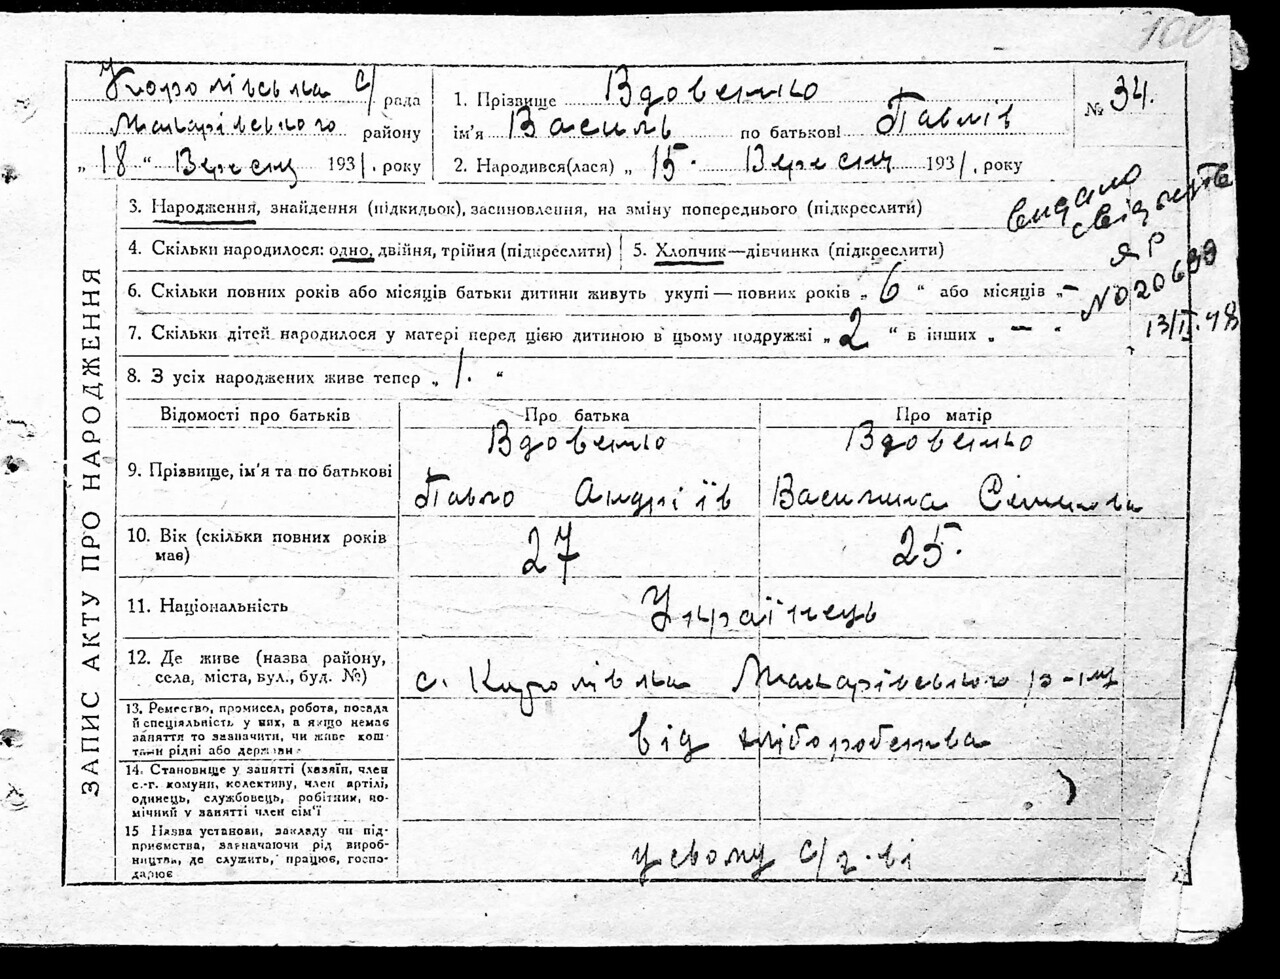 100
Королівська с/рада
Макарівського району
„18“ Вересня 1931. року
1. Прізвище Вдовенко
ім'я Василь по батькові Павлів
2. Народився(лася) „15. Вересня 1931. року
№ 34.
3. Народження, знайдення (підкидьок), засиновлення, на зміну попереднього (підкреслити)
4. Скільки народилося: одно, двійня, трійня (підкреслити)
5. Хлопчик—дівчинка (підкреслити)
6. Скільки повних років або місяців батьки дитини живуть укупі — повних років „ 6 “ або місяців „–
7. Скільки дітей народилося у матері перед цією дитиною в цьому подружжі „ 2 “ в інших „ –
8. З усіх народжених живе тепер „ 1. “
видано
свідоцтв
ЯР
№020699
13/II.48
ЗАПИС АКТУ ПРО НАРОДЖЕННЯ
Відомості про батьків
Про батька
Про матір
9. Прізвище, ім'я та по батькові
Вдовенко
Павло Андріїв
Вдовенко
Василина Семенова
10. Вік (скільки повних років
має)
27
25.
11. Національність
Українець
12. Де живе (назва району,
села, міста, вул., буд. №)
с. Королівка Макарівського р-ну
13. Ремество, промисел, робота, посада
й спеціяльність у них, а якщо немає
заняття то зазначити, чи живе кош-
тами рідні або держави
від хліборобства
14. Становище у занятті (хазяїн, член
с.-г. комуни, колективу, член артілі,
одинець, службовець, робітник, по-
мічний у занятті член сім'ї
15 Назва установи, закладу чи під-
приємства, зазначаючи рід вироб-
ництва, де служить, працює, госпо-
дарює
у свому с/г-ві